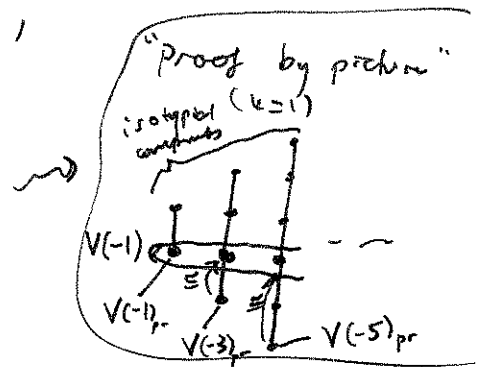 "Proof by picture"
(k=1)
isotypical
components
V(-1)
≅
≅
V(-1)pr
V(-3)pr
V(-5)pr